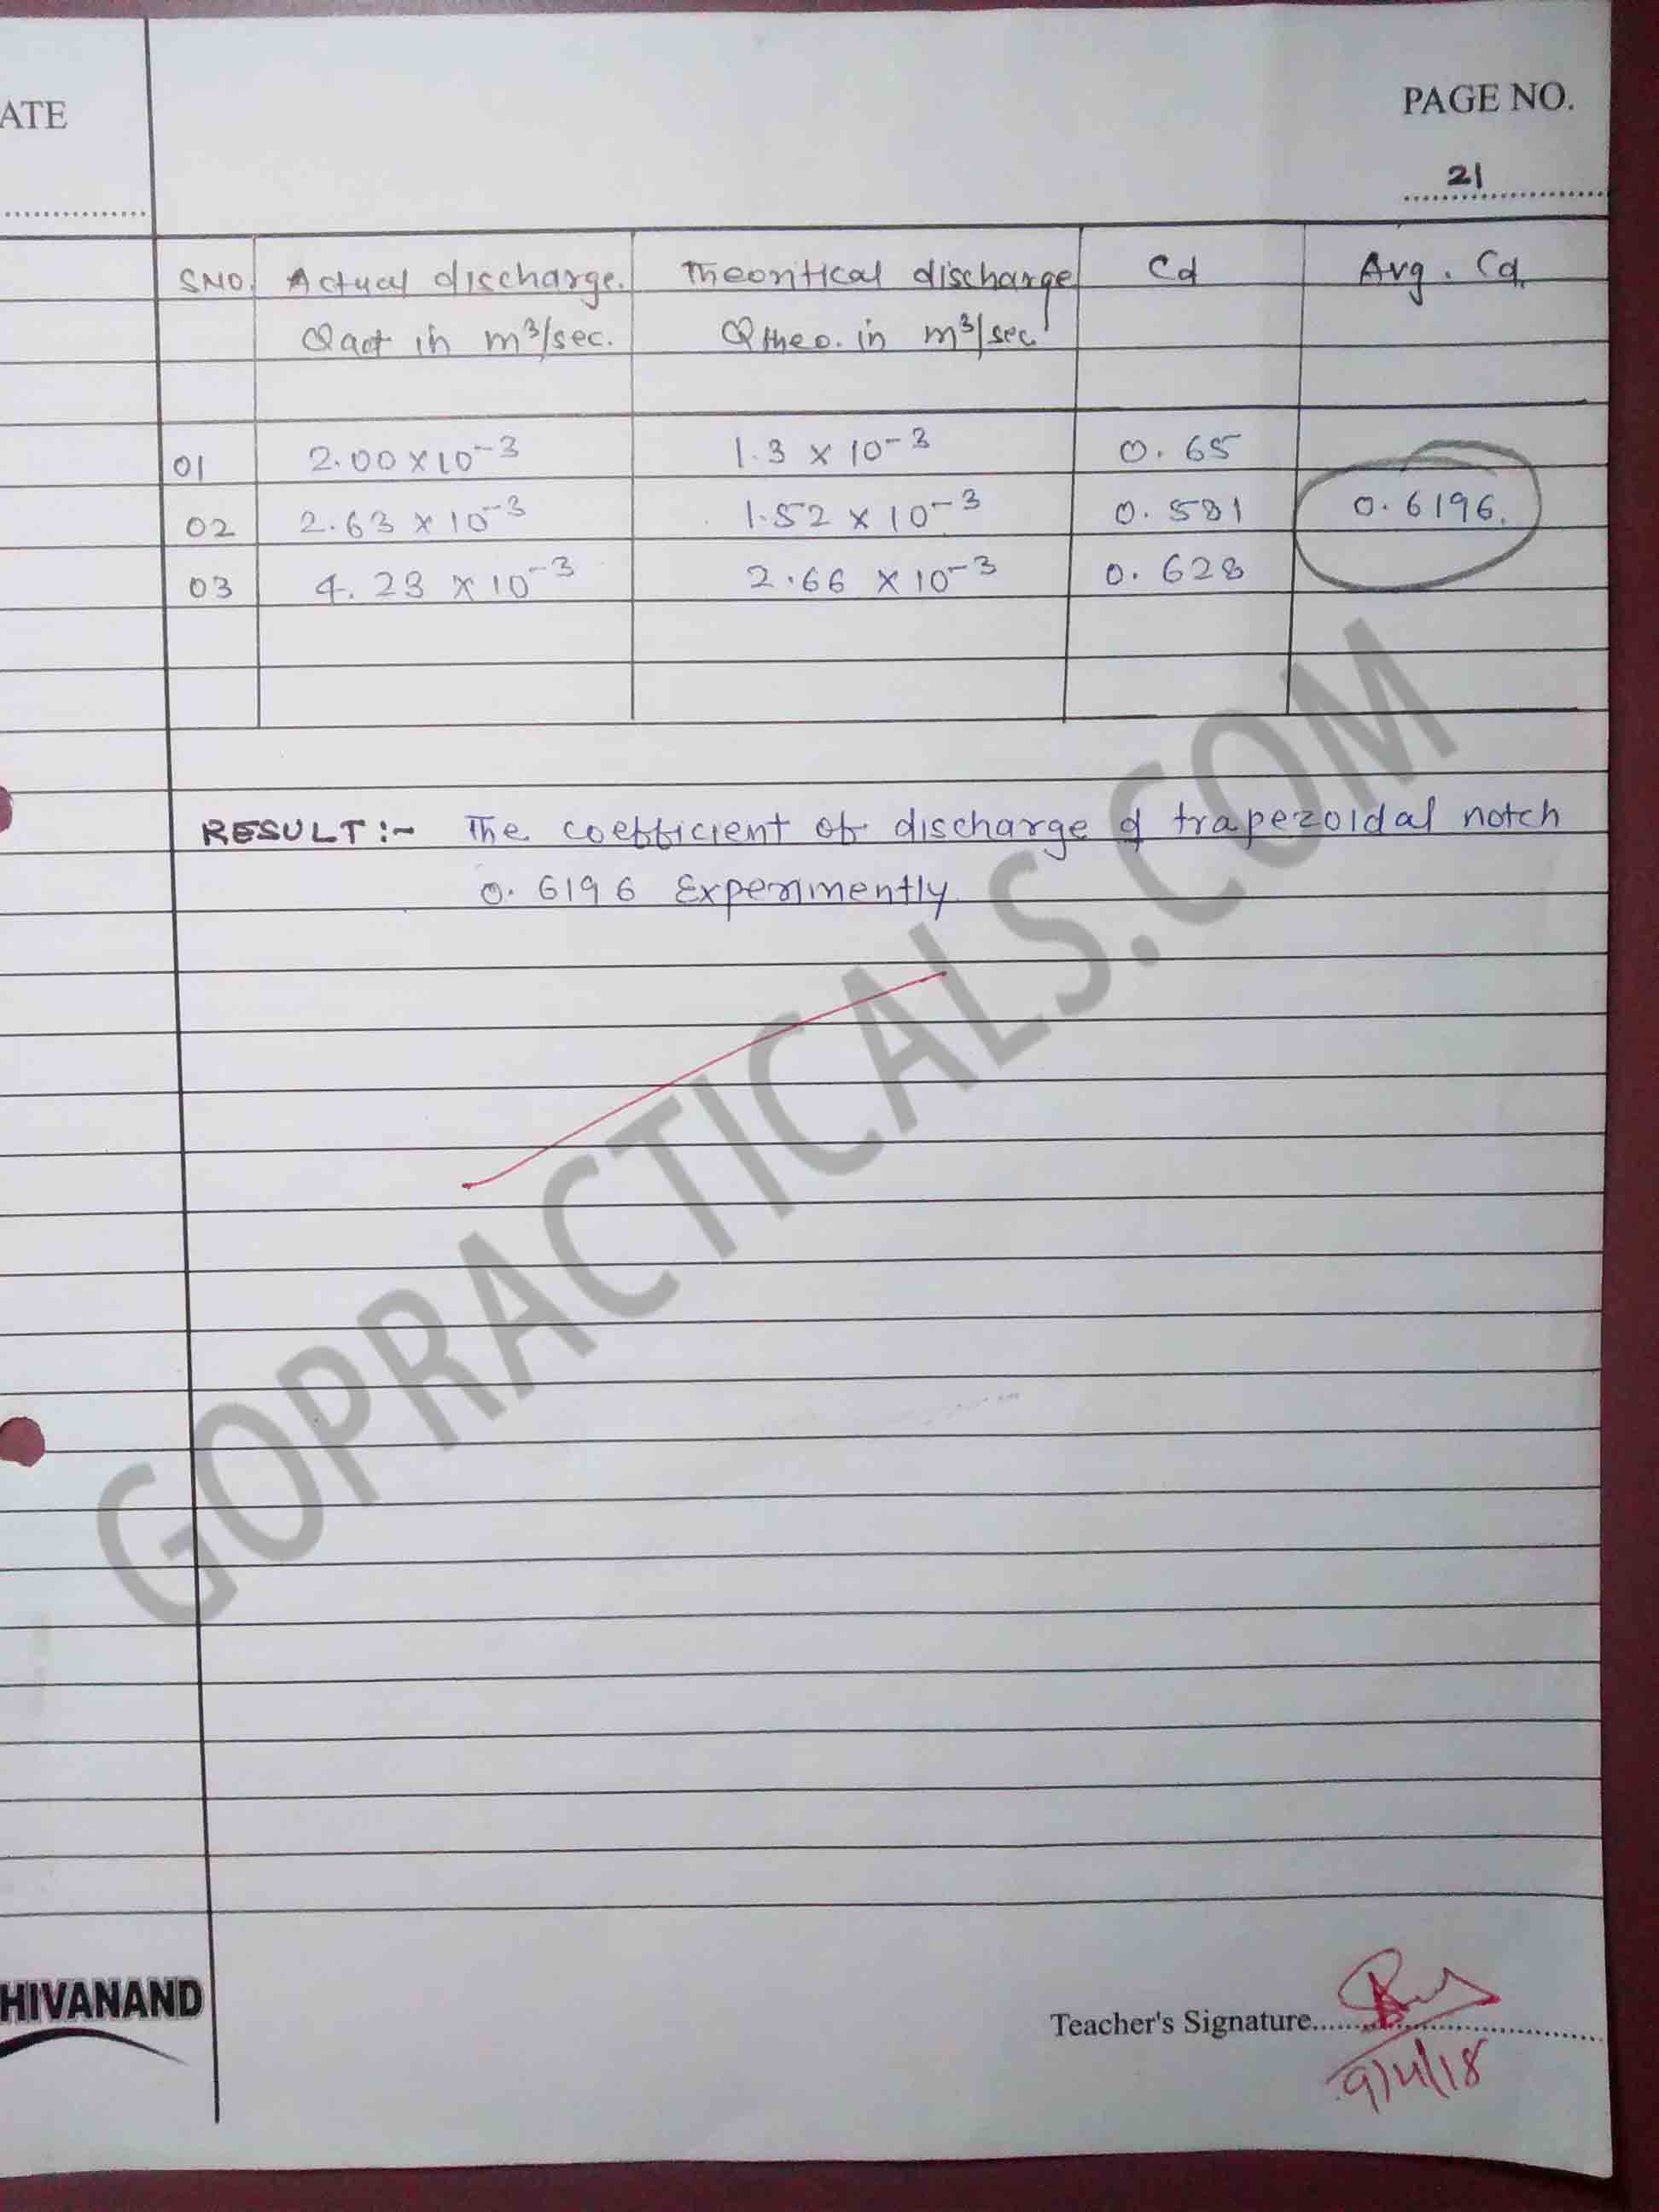 ATE
PAGE NO.
21
SNO. Actual discharge. Theoritical discharge Cd Avg. Cd.
Qact in m³/sec. Qtheo. in m³/sec
01 2.00 x 10⁻³ 1.3 x 10⁻³ 0.65
02 2.63 x 10⁻³ 1.52 x 10⁻³ 0.581 0.6196.
03 4.23 x 10⁻³ 2.66 x 10⁻³ 0.628
RESULT :- The coefficient of discharge of trapezoidal notch
0.6196 Experimently.
GOPRACTICALS.COM
HIVANAND
Teacher's Signature
9/4/18